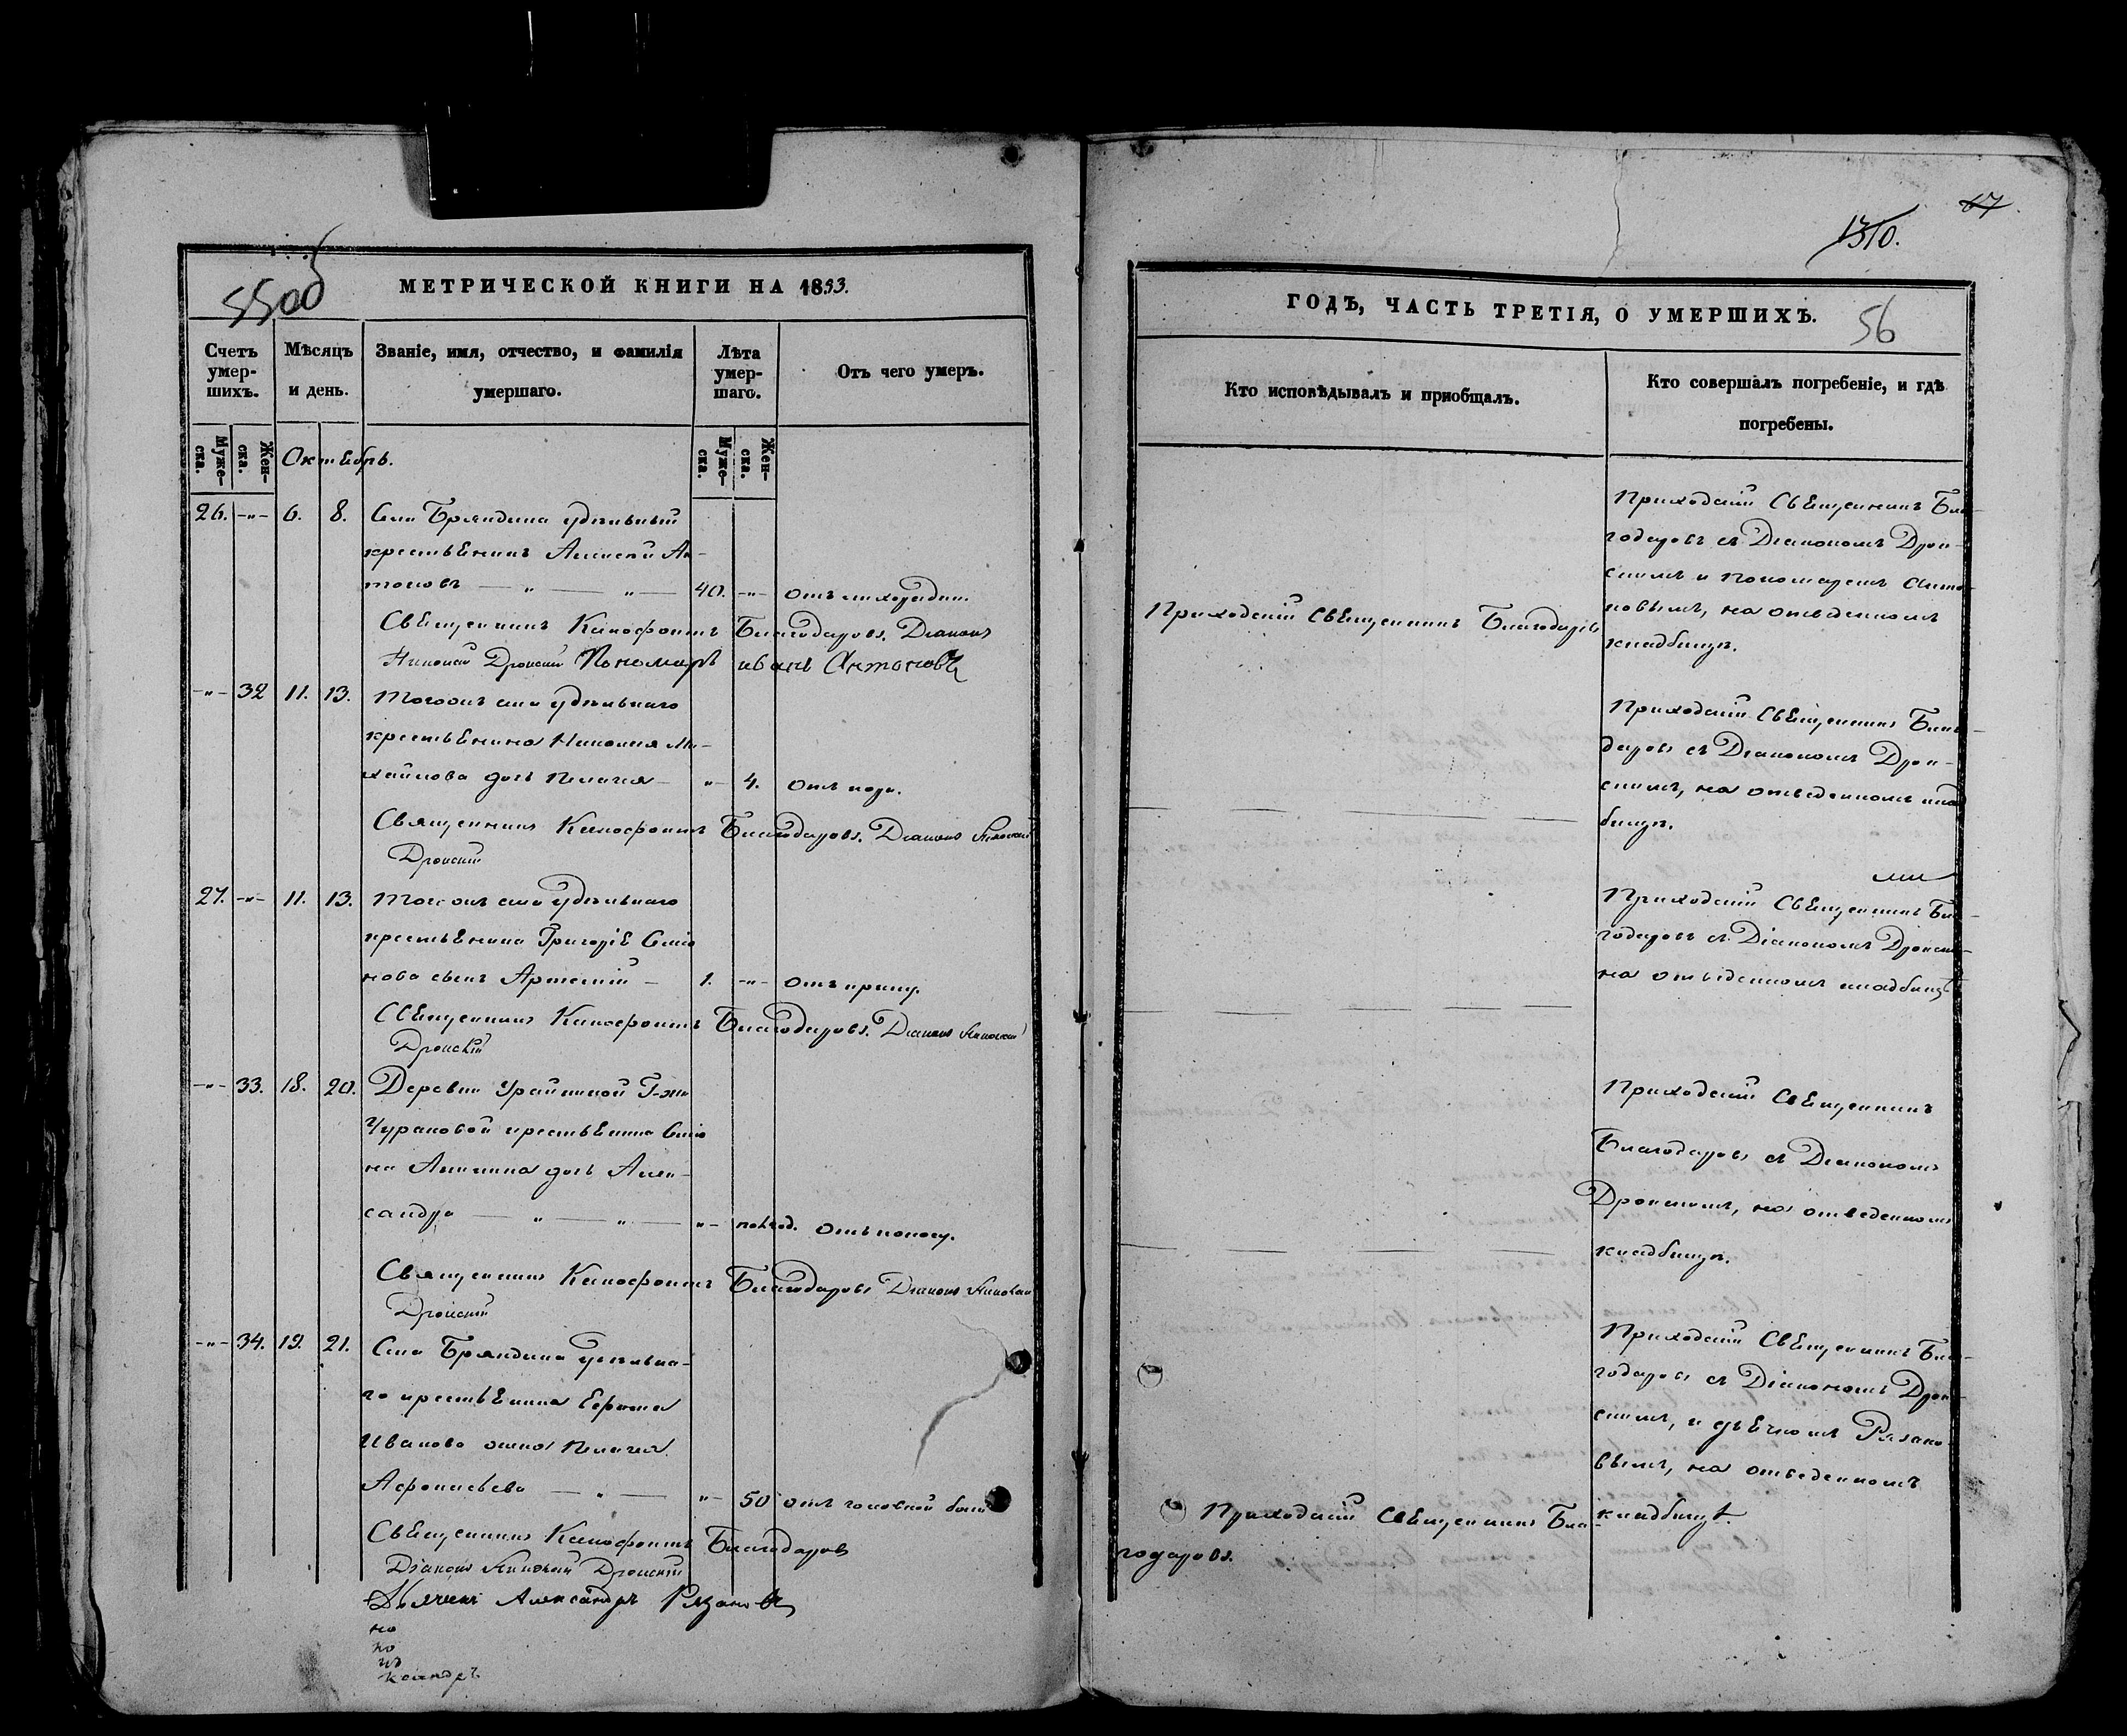 550об
МЕТРИЧЕСКОЙ КНИГИ НА 1853.
Счетъ умер-шихъ.
Мѣсяцъ и день.
Званіе, имя, отчество, и фамилія умершаго.
Лѣта умер-шаго.
Отъ чего умеръ.
Муже-ска.
Жен-ска.
Октябрь.
Муже-ска.
Жен-ска.
26. -„- 6. 8. Села Бряндина удѣльный
крестьянинъ Алексѣй Ан-
тоновъ — „ — „ — 40. -„- отъ лихорадки.
Священникъ Ксенофонтъ Благодаровъ. Діаконъ
Николай Дронскій Пономарь иванъ Антоновъ
-„- 32 11. 13. Тогожъ села удѣльнаго
крестьянина Николая Ми-
хайлова дочь Пелагея — „- 4. отъ
Священникъ Ксенофонтъ Благодаровъ. Діаконъ Николай
Дронскій
27. -„- 11. 13. Тогожъ села удѣльнаго
крестьянина Григорія Семіо
нова сынъ Артемій — 1. -„- отъ крику.
Священникъ Ксенофонтъ Благодаровъ. Діаконъ Николай
Дронскій
-„- 33. 18. 20. Деревни Урайкиной Г-жи
Чураковой крестьянина Семіо
на дочь Алек-
сандра — „ — „ — „- полгод. отъ поносу.
Священникъ Ксенофонтъ Благодаровъ Діаконъ Николай
Дронскій
-„- 34. 19. 21. Села Бряндина удѣльна-
го крестьянина Ефима
Иванова жена Пелагея
Афонасьева — „ — „- 50 отъ головной боли
Священникъ Ксенофонтъ Благодаровъ
Діаконъ Николай Дронскій
Дьячекъ Александръ Рязановъ
но
но
ксандръ
67.
1310.
ГОДЪ, ЧАСТЬ ТРЕТІЯ, О УМЕРШИХЪ.
56
Кто исповѣдывалъ и пріобщалъ.
Кто совершалъ погребеніе, и гдѣ погребены.
Приходскій Священникъ Благодаровъ
Приходскій Священникъ Бла-
годаровъ съ Діакономъ Дрон-
скимъ и Пономаремъ Анто-
новымъ, на отведенномъ
кладбищѣ.
Приходскій Священникъ Благо-
даровъ съ Діакономъ Дрон-
скимъ, на отведенномъ клад
бищѣ.
Приходскій Священникъ Бла-
годаровъ съ Діакономъ Дронски-
мъ
на отведенномъ кладбищѣ
Приходскій Священникъ
Благодаровъ съ Діакономъ
Дронскимъ, на отведенномъ
кладбищѣ.
Приходскій Священникъ Бла-
годаровъ.
Приходскій Священникъ Бла-
годаровъ съ Діакономъ Дрон-
скимъ, и дьячкомъ Рязано-
вымъ, на отведенномъ
кладбищѣ.